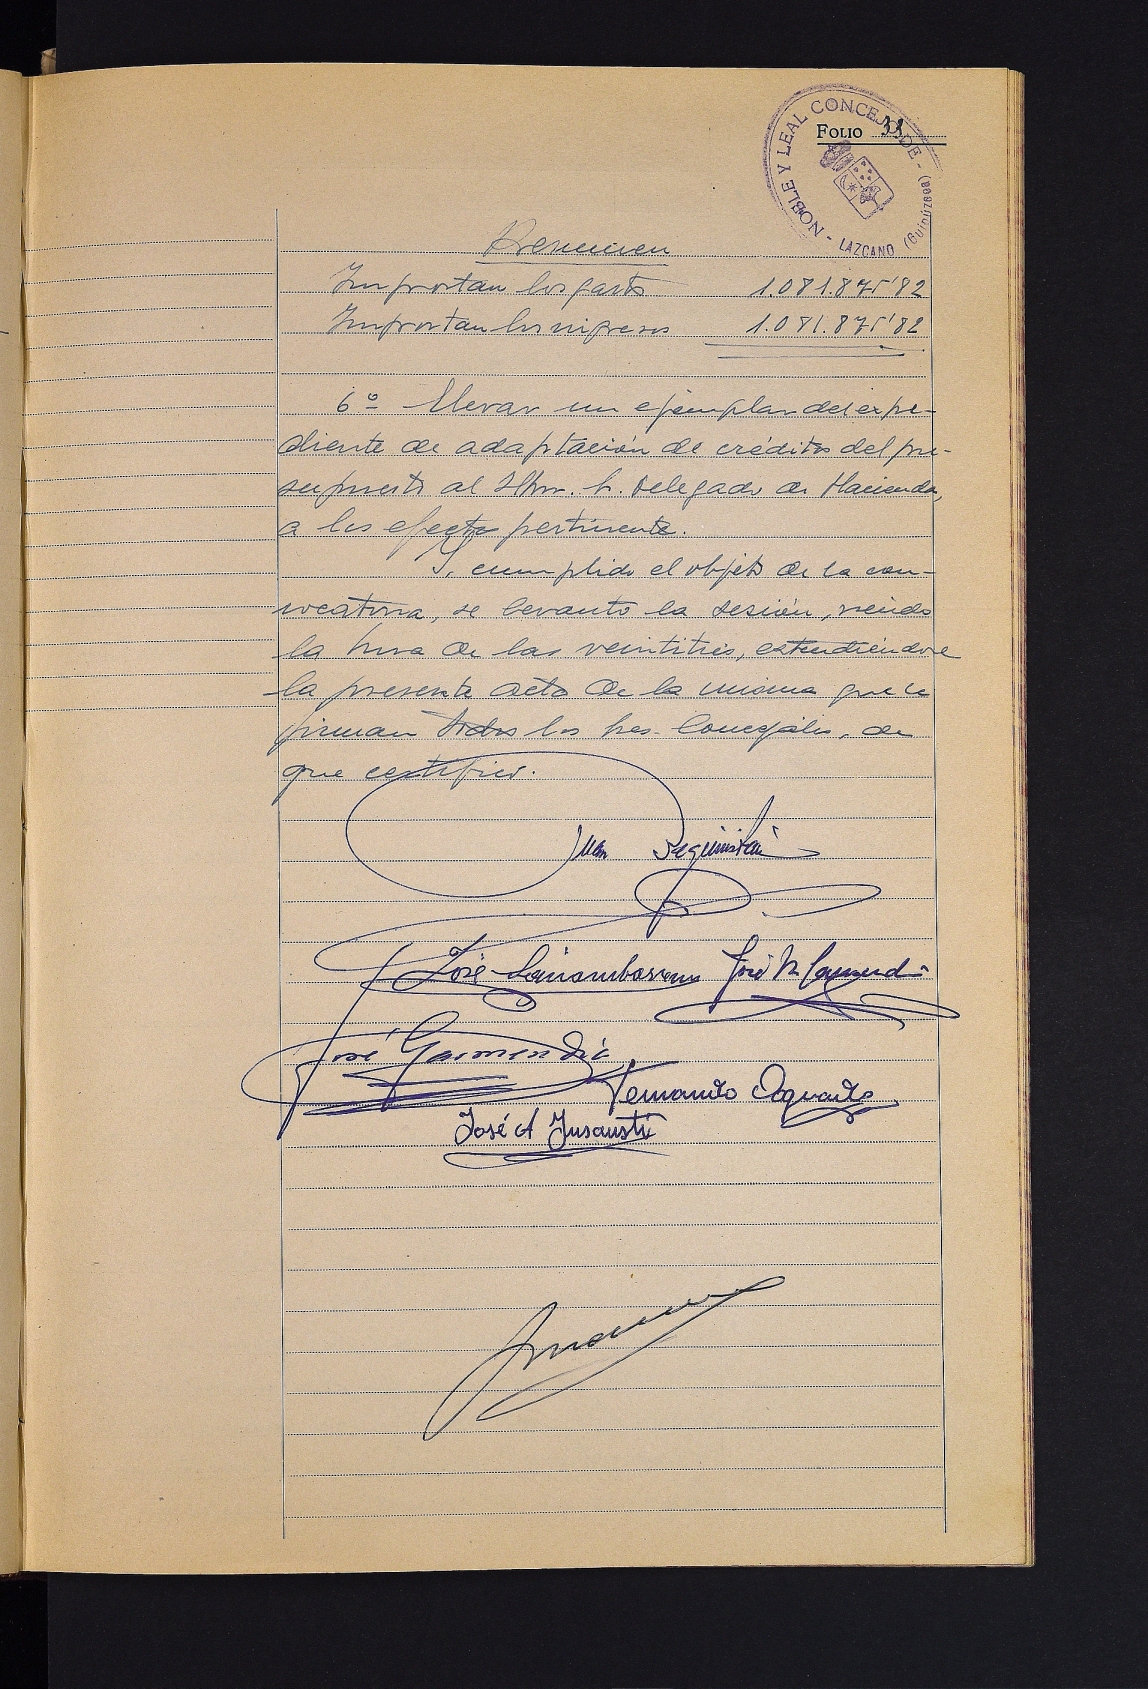 NOBLE Y LEAL CONCEJO DE - LAZCANO (Guipúzcoa) -
FOLIO
Resumen
Importan los gastos 1.081.875'82
Importan los ingresos 1.081.875'82
6º Elevar un ejemplar del expe-
diente de adaptación de créditos del pre-
supuesto al Iltmo. Sr. Delegado de Hacienda,
a los efectos pertinente.
Y, cumplido el objeto de la con-
vocatoria, se levanto la sesión, siendo
la hora de las veintitrés, extendiéndose
la presente acta de la misma que la
firman todos los Sres. Concejales, de
que certifico.
Juan
José José M. Garmendia
José Garmendia
Fernando
José A Insausti